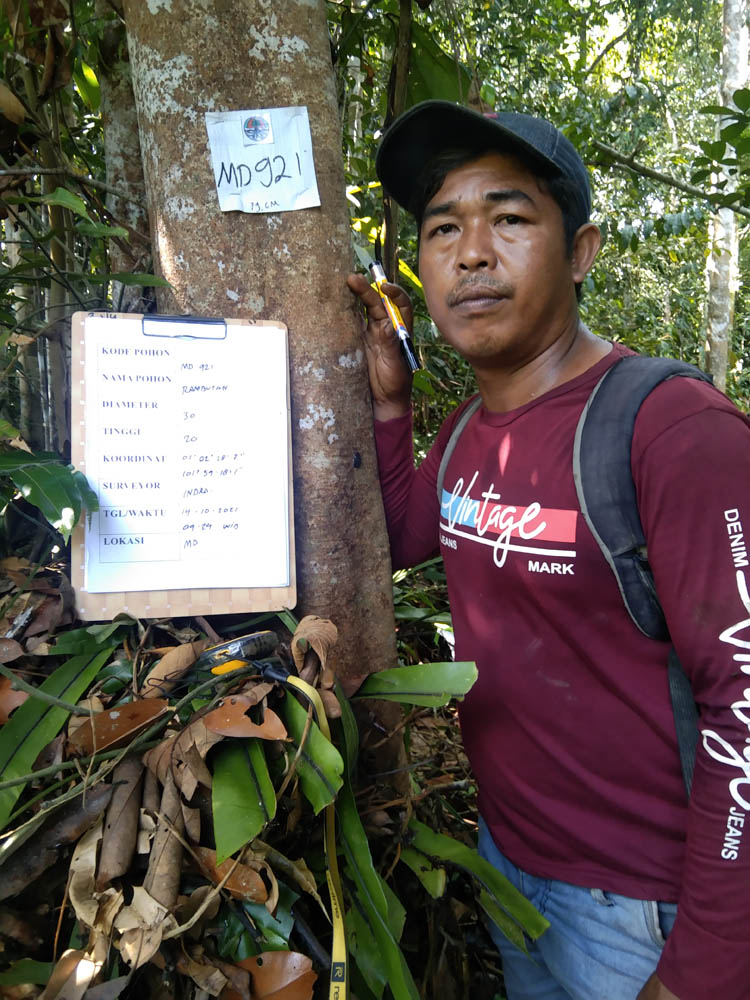 MD 921
19 CM
KODE POHON
MD 921
NAMA POHON
RAMBUTAN
DIAMETER
30
TINGGI
20
KOORDINAT
SURVEYOR
INDRA
TGL/WAKTU
19-10-2021
09-29 WIB
LOKASI
MD
Vintage
JEANS
MARK
DENIM
Vintage
JEANS